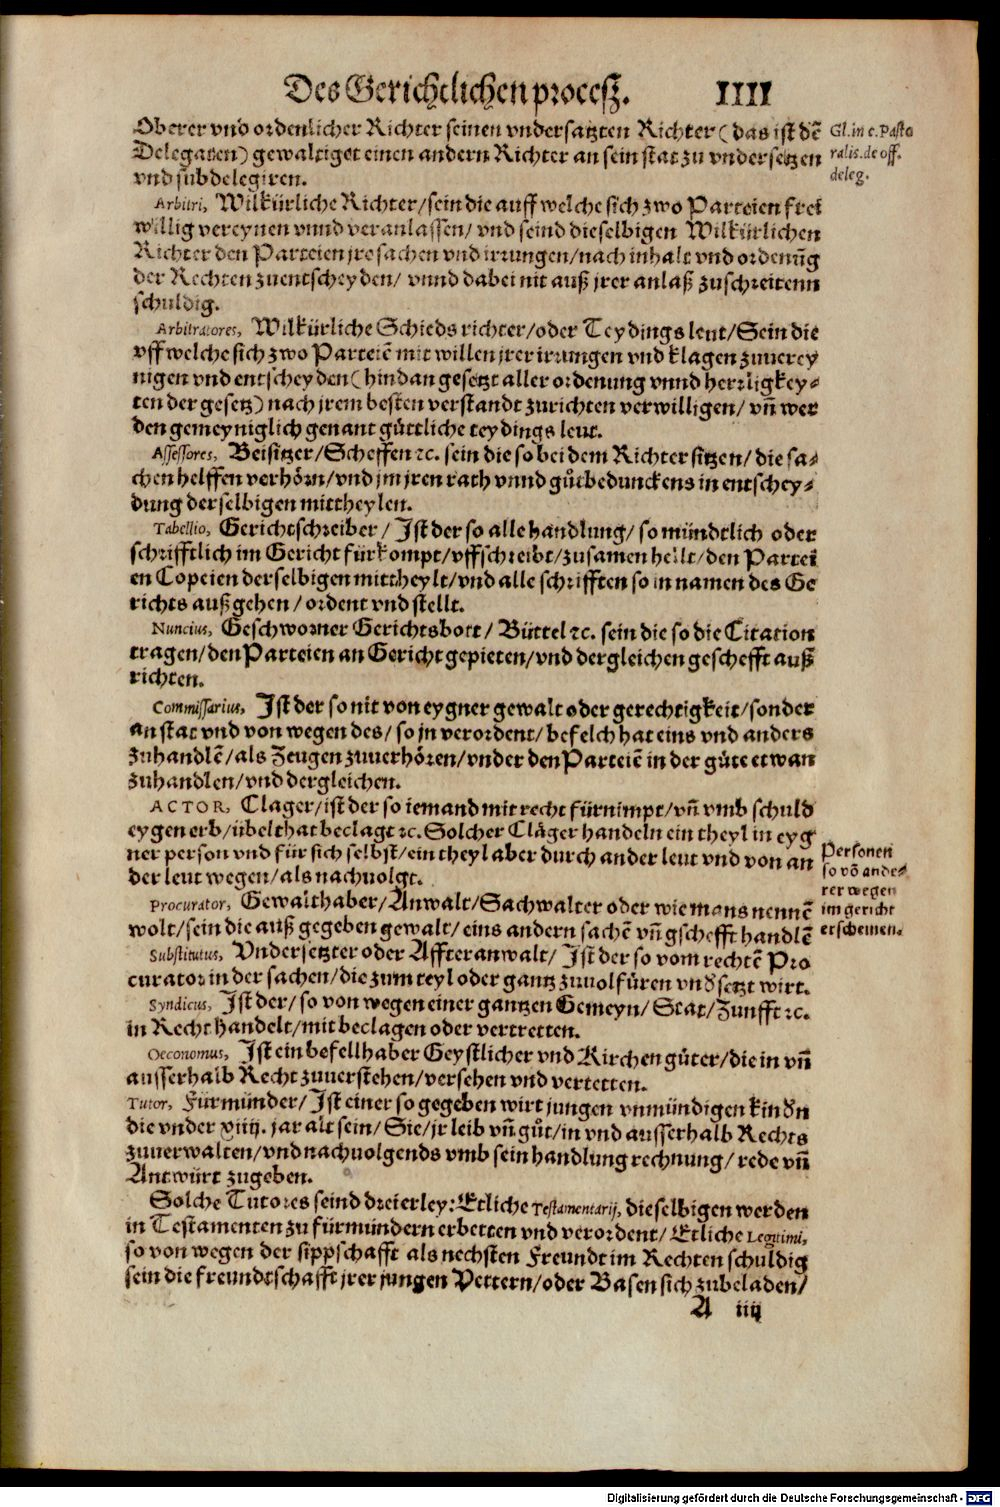 Des Gerichtlichen proceß. IIII
Oberer vnd ordenlicher Richter seinen vndersatzten Richter (das ist dē
Delegaten) gewaltiget einen andern Richter an sein stat zu vndersetzen
vnd subdelegiren.
Gl. in c. Pasto
ralis. de off.
deleg.
Arbitri, Wilkürliche Richter/sein die auff welche sich zwo Parteien frei
willig vereynen vnnd veranlassen/ vnd seind dieselbigen Wilkürlichen
Richter den Parteien jre sachen vnd irrungen/nach inhalt vnd ordenūg
der Rechten zuentscheyden/ vnnd dabei nit auß jrer anlaß zuschreitenn
schuldig.
Arbitratores, Wilkürliche Schieds richter/oder Teydings leut/Sein die
vff welche sich zwo Parteiē mit willen jrer irrungen vnd klagen zuuerey
nigen vnd entscheyden (hindan gesetzt aller ordenung vnnd herrligkey-
ten der gesetz) nach jrem besten verstandt zurichten verwilligen/ vn̄ wer
den gemeyniglich genant güttliche teydings leut.
Assessores, Beisitzer/Scheffen ꝛc. sein die so bei dem Richter sitzen/ die sa-
chen helffen verhörn/vnd jm jren rath vnnd gůtbedunckens in entschey-
dung der selbigen mittheylen.
Tabellio, Gerichtschreiber/ Ist der so alle handlung/ so mündtlich oder
schrifftlich im Gericht fürkompt/vffschreibt/zusamen hellt/den Partei
en Copeien derselbigen mittheylt/vnd alle schrifften so in namen des Ge
richts auß gehen/ ordent vnd stellt.
Nuncius, Geschworner Gerichtsbott/ Büttel ꝛc. sein die so die Citation
tragen/den Parteien an Gericht gepieten/vnd dergleichen geschefft auß
richten.
Commissarius, Ist der so nit von eygner gewalt oder gerechtigkeit/sonder
an stat vnd von wegen des/ so jn verordent/ befelch hat eins vnd anders
zuhandlē/als Zeugen zuuerhören/vnder den Parteiē in der güte etwan
zuhandlen/vnd dergleichen.
ACTOR, Clager/ist der so iemand mit recht fürnimpt/vn̄ vmb schuld
eygen erb/übelthat beclagt ꝛc. Solcher Cläger handeln ein theyl in eyg
ner person vnd für sich selbst/ein theyl aber durch ander leut vnd von an
der leut wegen/als nachuolgt.
Personen
so vō ande-
rer wegen
im gericht
erscheinen.
Procurator, Gewalthaber/Anwalt/Sachwalter oder wie mans nennē
wolt/sein die auß gegeben gewalt/ eins andern sachē vn̄ gschefft handlē
Substitutus, Vndersetzter oder Affteranwalt/ Ist der so vom rechtē Pro
curator in der sachen/die zum teyl oder gantz zuuolfüren vnd̕setzt wirt.
Syndicus, Ist der/ so von wegen einer gantzen Gemeyn/ Stat/Zunfft ꝛc.
in Recht handelt/mit beclagen oder vertretten.
Oeconomus, Ist ein befellhaber Geystlicher vnd Kirchen güter/die in vn̄
ausserhalb Recht zuuerstehen/versehen vnd vertetten.
Tutor, Fürmünder/ Ist einer so gegeben wirt jungen vnmündigen kind̕n
die vnder xiiij. jar alt sein/ Sie/jr leib vn̄ gůt/in vnd ausserhalb Rechts
zuuerwalten/vnd nachuolgends vmb sein handlung rechnung/ rede vn̄
Antwürt zugeben.
Solche Tutores seind dreierley: Etliche Testamentarij, dieselbigen werden
in Testamenten zu fürmündern erbetten vnd verordent/ Etliche Legitimi,
so von wegen der sippschafft als nechsten Freundt im Rechten schuldig
sein die freundtschafft jrer jungen Vettern/oder Basen sich zubeladen/
A iiij
Digitalisierung gefördert durch die Deutsche Forschungsgemeinschaft - DFG